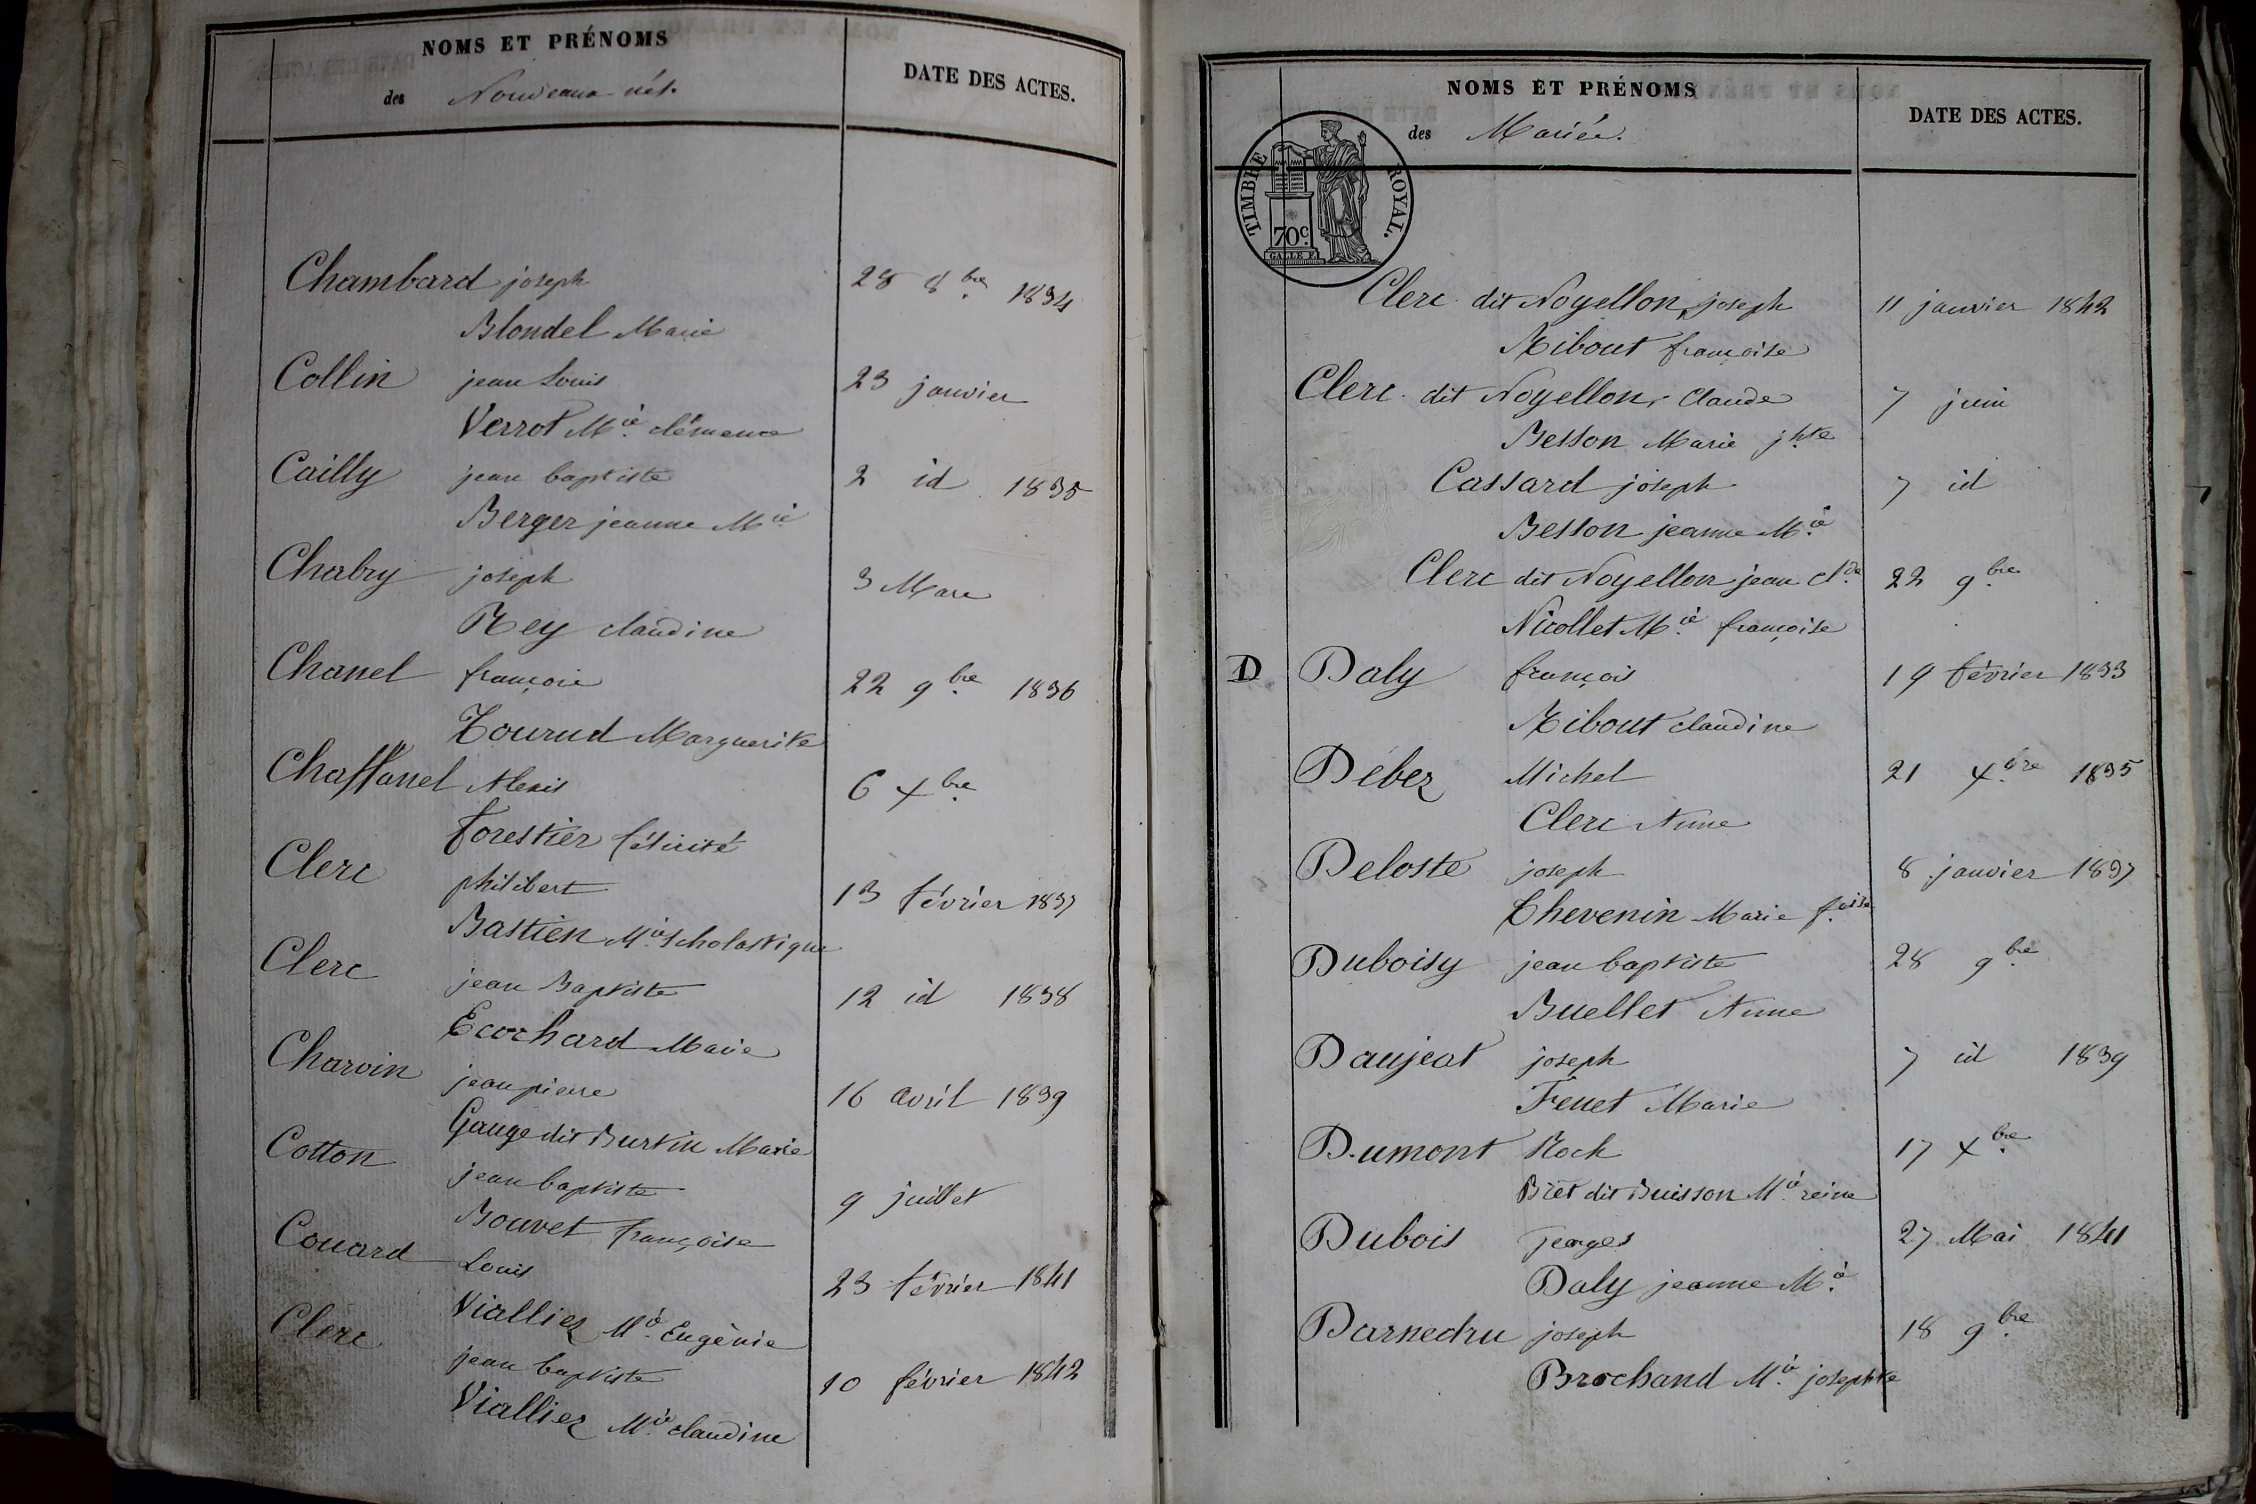 NOMS ET PRÉNOMS
des Nouveaux nés.
DATE DES ACTES.
Chambard joseph 28 8bre 1834
Blondel Marie
Collin jean Louis 23 janvier
Verrot Mie clémence
Cailly jean baptiste 2 id 1835
Berger jeanne Mie
Chabry joseph 3 Mars
Rey claudine
Chanel françois 22 9bre 1836
Tournud Marguerite
Chaffanel Alexis 6 Xbre
Forestier félicité
Clerc philibert 13 février 1837
Bastien Mie scholastique
Clerc jean Baptiste 12 id 1838
Ecochard Marie
Charvin jean pierre 16 avril 1839
Gauge dit Burtin Marie
Cotton jean baptiste 9 juillet
Bouvet françoise
Couard Louis 23 février 1841
Viallier Mie Eugènie
Clerc jean baptiste 10 février 1842
Viallier Mie claudine
NOMS ET PRÉNOMS
des Mariés.
DATE DES ACTES.
TIMBRE ROYAL.
70c.
GALLE F.
Clerc dit Noyellon, joseph 11 janvier 1842
Ribout françoise
Clerc dit Noyellon, Claude 7 juin
Besson Marie jhte
Cassard joseph 7 id
Besson jeanne Mie
Clerc dit Noyellon jean clde 22 9bre
Nicollet Mie françoise
D Daly françois 19 février 1833
Ribout claudine
Debez Michel 21 Xbre 1835
Clerc Anne
Deloste joseph 8 janvier 1837
Thevenin Marie foise
Duboisy jean baptiste 28 9bre
Buellet Anne
Daujeat joseph 7 id 1839
Fenet Marie
Dumont Rock 17 Xbre
Bret dit Buisson Mie reine
Dubois georges 27 Mai 1841
Daly jeanne Mie
Darnedru joseph 18 9bre
Brochand Mie josephte